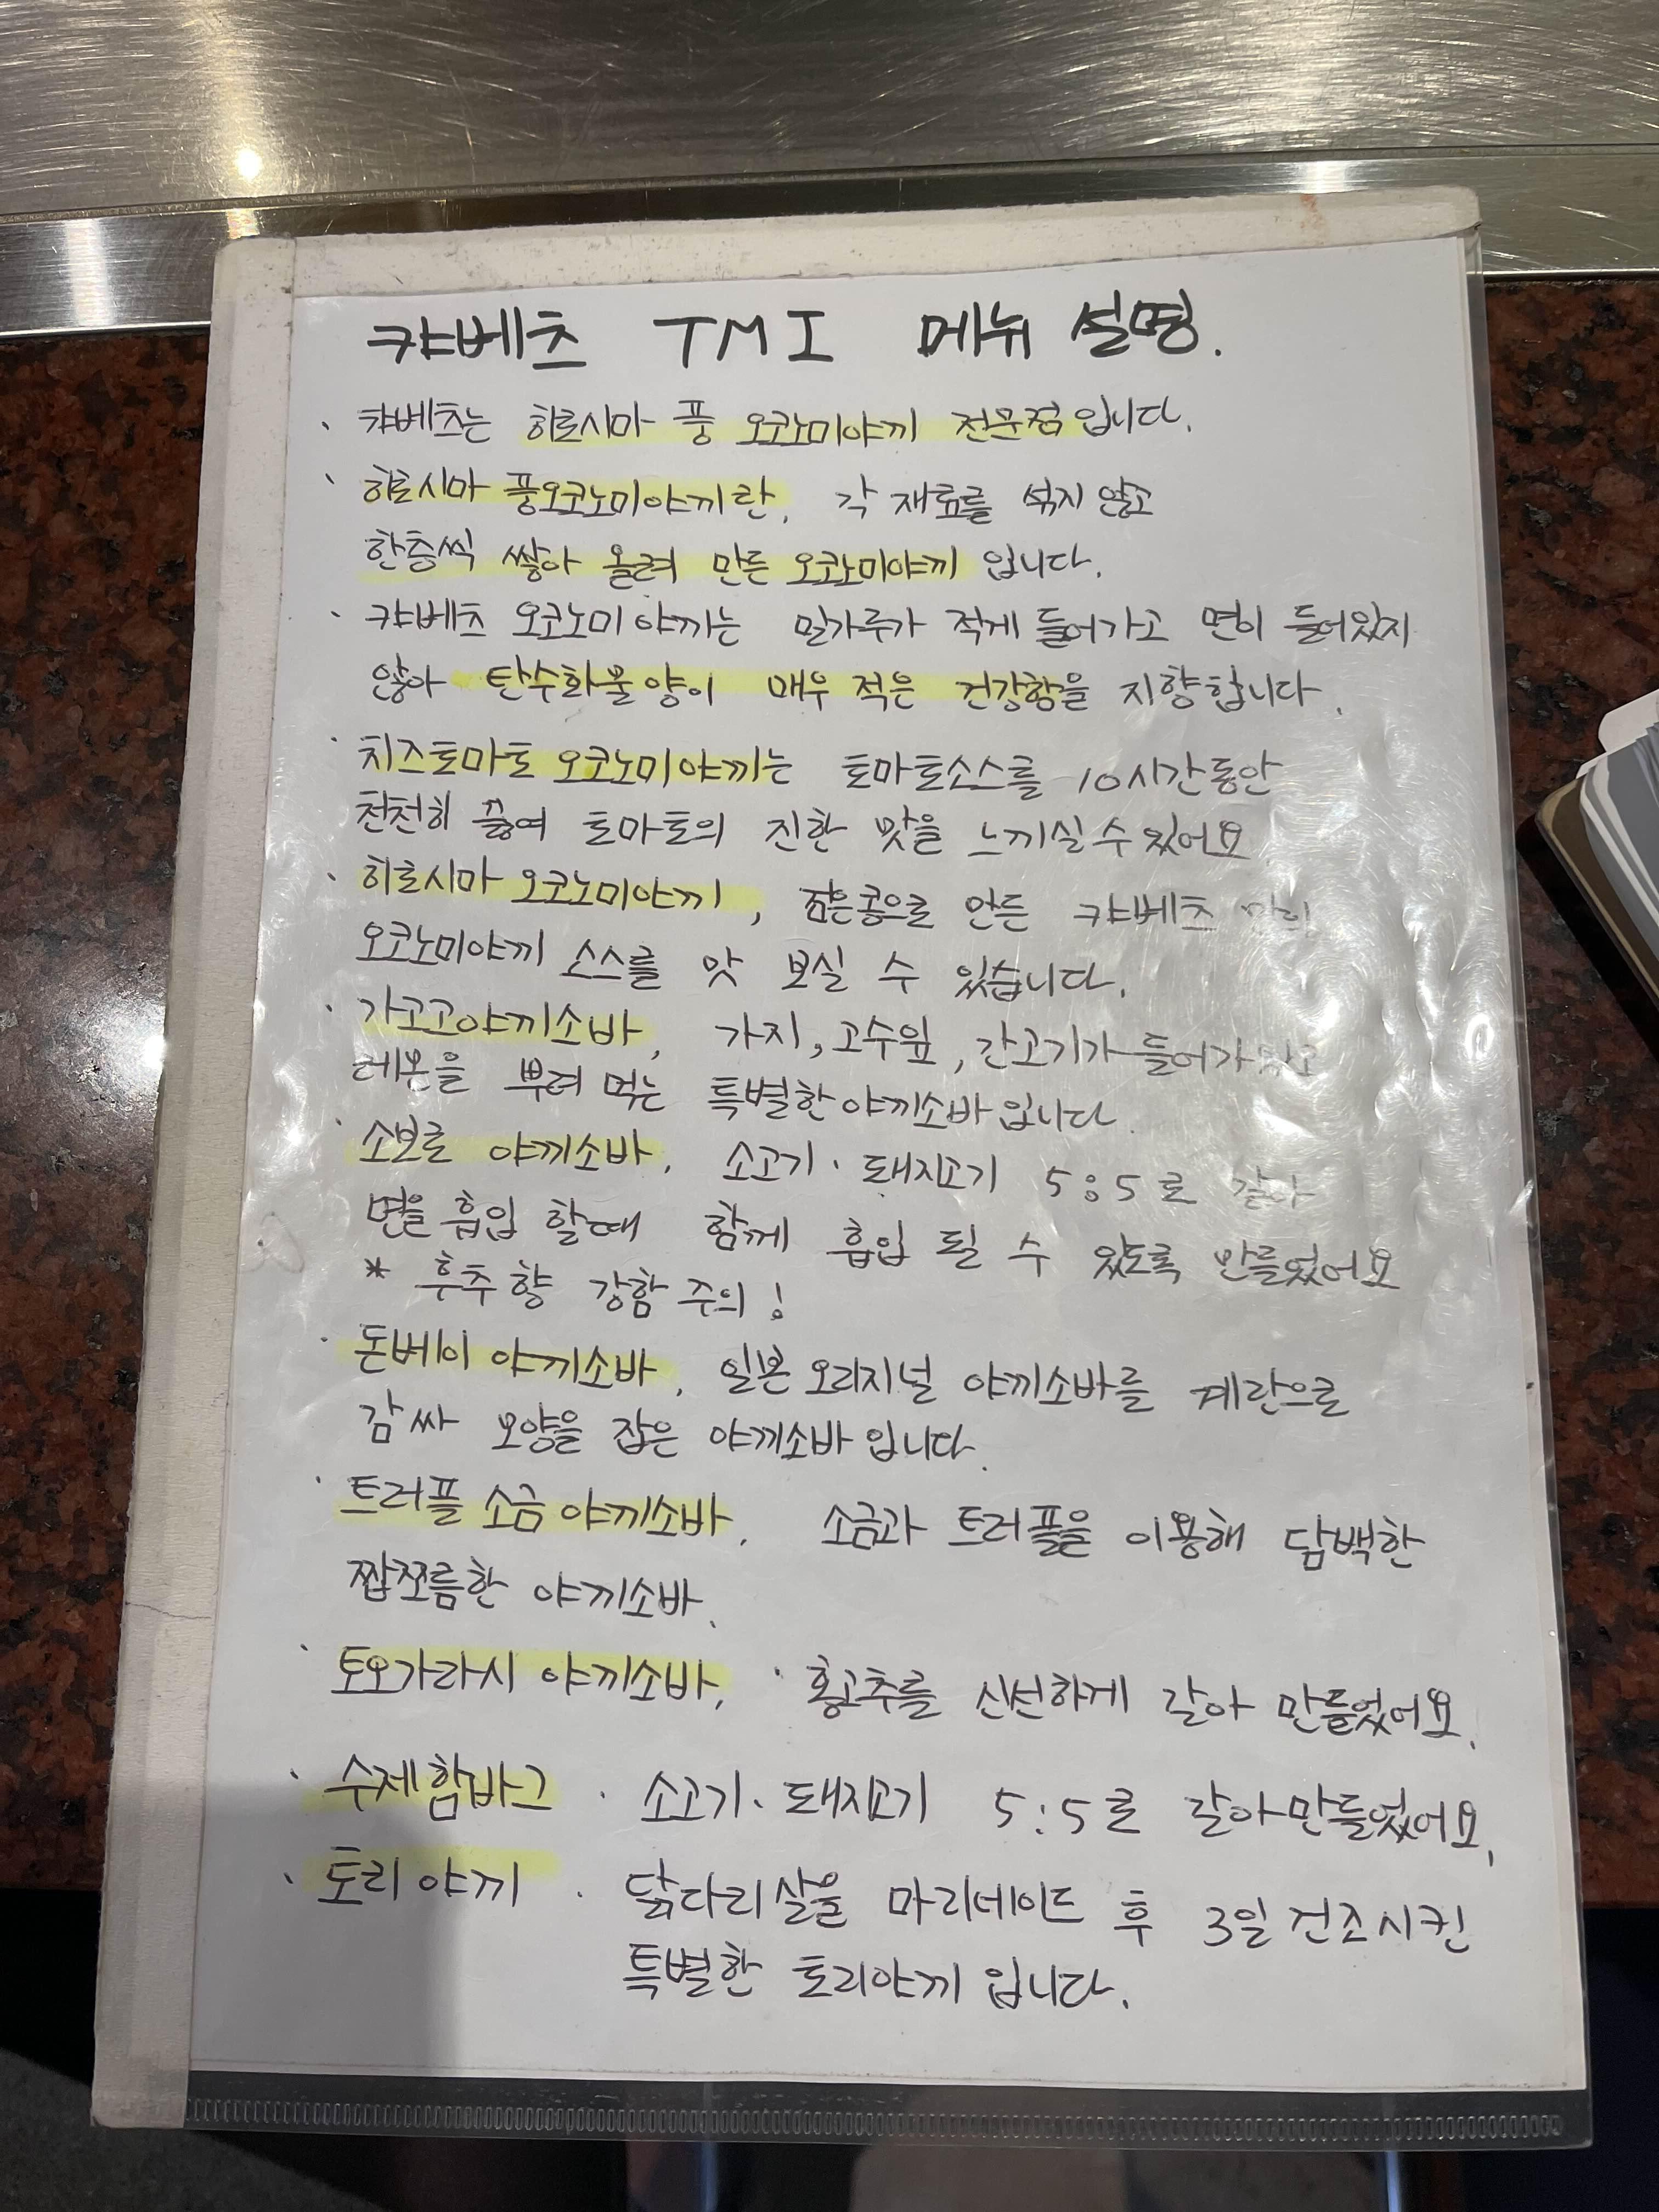 캬베츠 TMI 메뉴 설명.
· 캬베츠는 히로시마 풍 오코노미야끼 전문점입니다.
· 히로시마 풍오코노미야끼란, 각 재료를 섞지 않고
한층씩 쌓아 올려 만든 오코노미야끼 입니다.
· 캬베츠 오코노미야끼는 밀가루가 적게 들어가고 면이 들어있지
않아 탄수화물양이 매우 적은 건강함을 지향합니다.
· 치즈토마토 오코노미야끼는 토마토소스를 10시간동안
천천히 끓여 토마토의 진한 맛을 느끼실 수 있어요
· 히로시마 오코노미야끼, 검은콩으로 만든 캬베츠 만의
오코노미야끼 소스를 맛 보실 수 있습니다.
· 가고고야끼소바, 가지, 고수잎, 간고기가 들어가
레몬을 뿌려 먹는 특별한 야끼소바입니다.
· 소보로 야끼소바, 소고기 · 돼지고기 5:5로 갈아
면을 흡입 할때 함께 흡입 될 수 있도록 만들었어요
* 후추향 강함 주의!
· 돈베이 야끼소바, 일본 오리지널 야끼소바를 계란으로
감싸 모양을 잡은 야끼소바입니다.
· 트러플 소금 야끼소바, 소금과 트러플을 이용해 담백한
짭쪼름한 야끼소바.
· 토오가라시 야끼소바, · 홍고추를 신선하게 갈아 만들었어요.
· 수제함바그 · 소고기 · 돼지고기 5:5로 갈아만들었어요.
· 토리야끼 · 닭다리살을 마리네이드 후 3일 건조시킨
특별한 토리야끼 입니다.